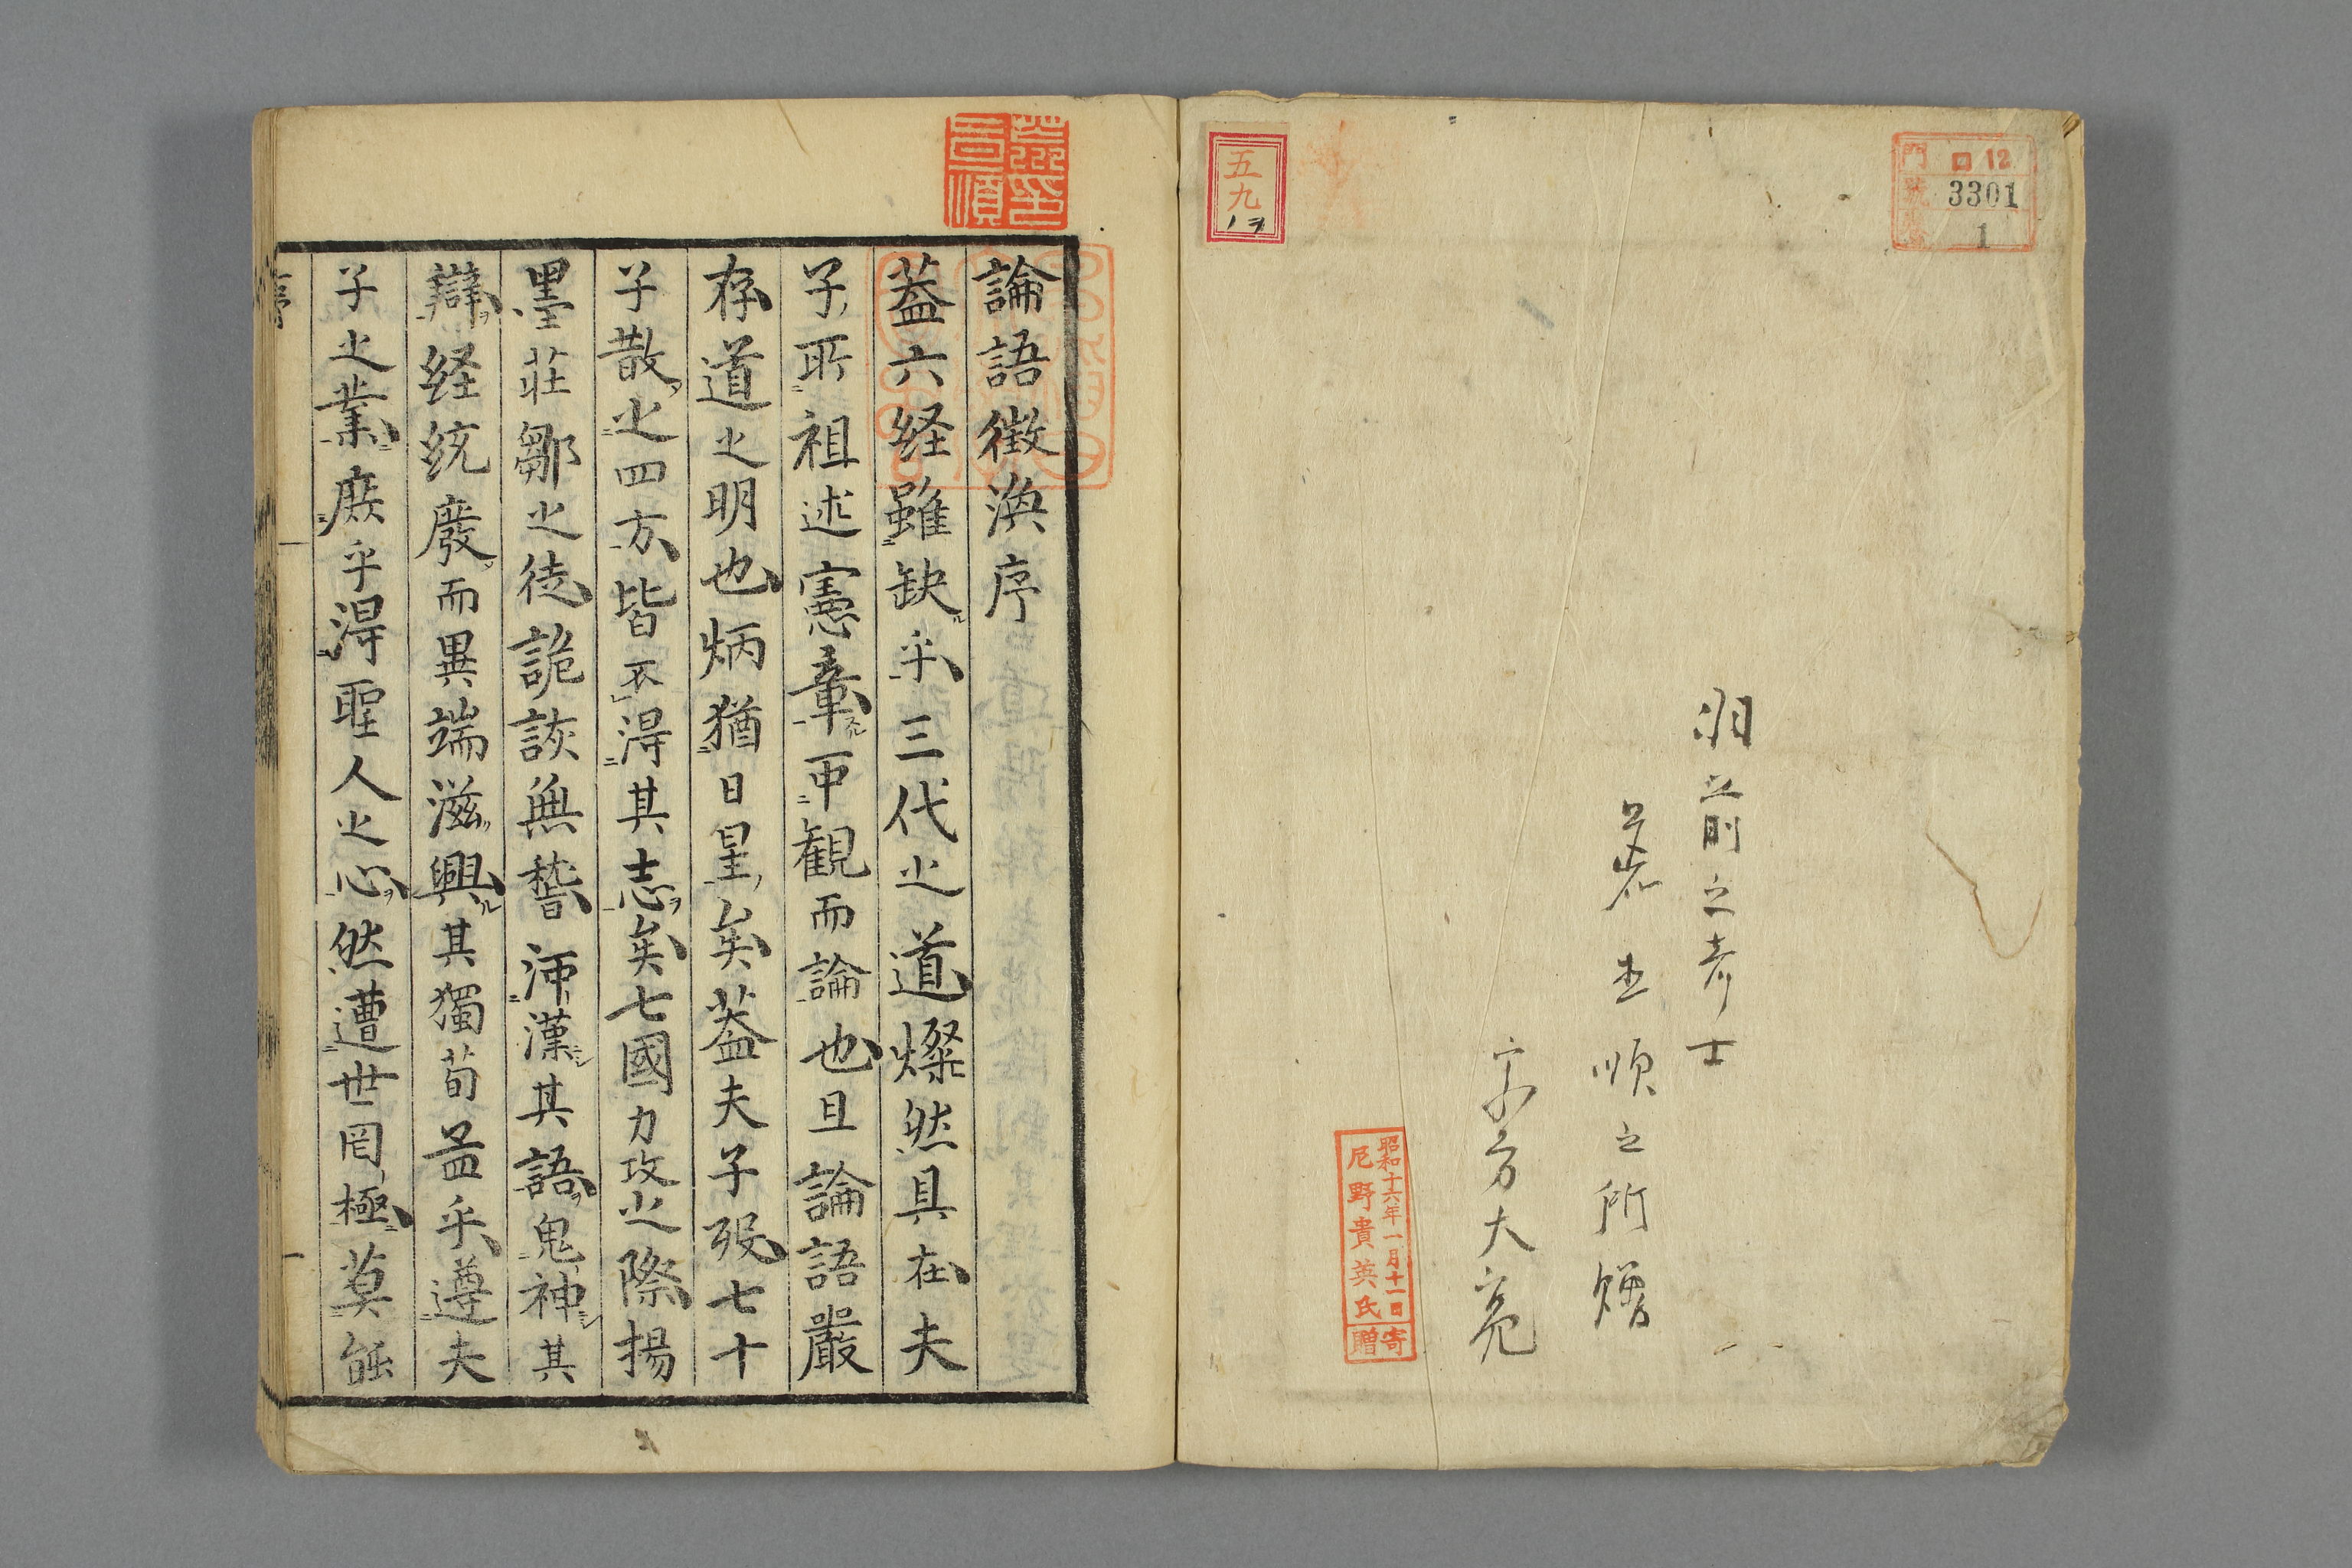 門 ロ 12
號 3301
1
五九
羽前之彦士
君圭順之所贈
方大亮
昭和十六年一月十一日
尼野貴英氏
寄贈
論語徴渙序
蓋六経雖缺乎三代之道燦然具在夫
子所祖述憲章可観而論也且論語嚴
存道之明也炳猶日星矣蓋夫子歿七十
子散之四方皆不得其志矣七國力攻之際揚
墨荘鄒之徒詭詼無稽河漢其語鬼神其
辯経統廢而異端滋興其獨荀孟乎遵夫
子之業庶乎得聖人之心然遭世罔極莫能
序